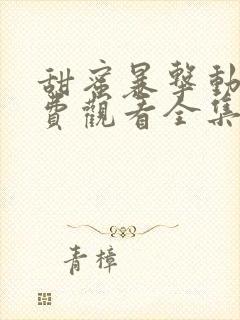 甜蜜暴擊動
費觀看全集
青樟